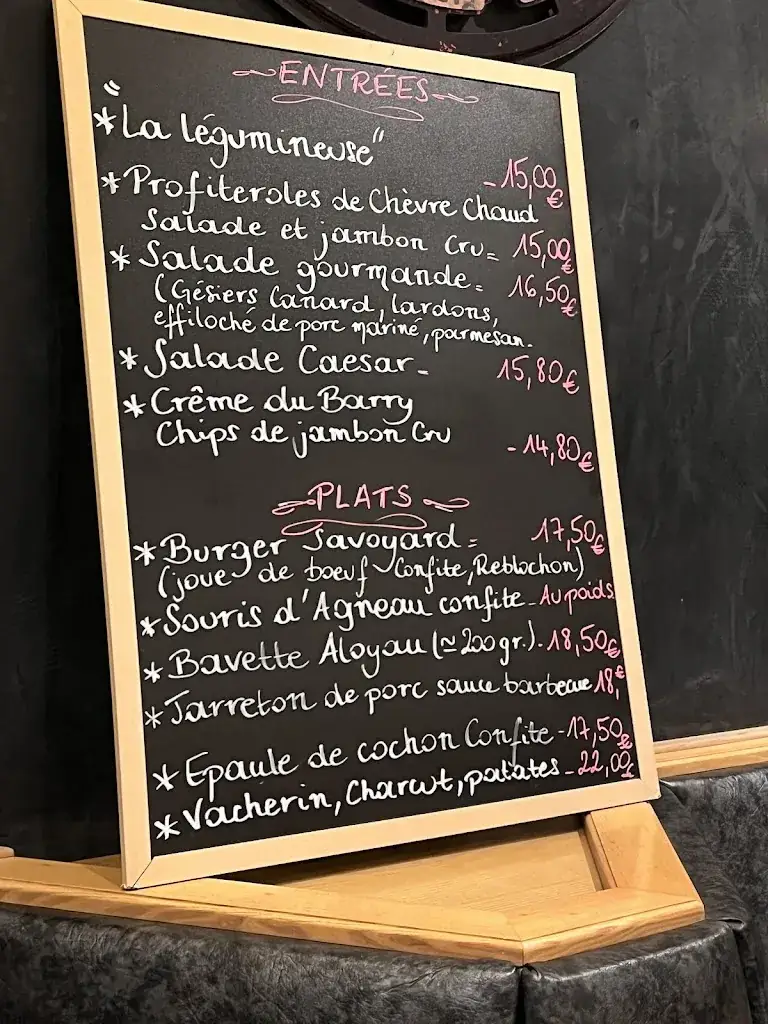 ENTRÉES
* "La légumineuse"
- 15,00€
* Profiteroles de Chèvre Chaud
Salade et jambon Cru = 15,00€
* Salade gourmande = 16,50€
(Gésiers Canard, lardons,
effiloché de porc mariné, parmesan -
* Salade Caesar - 15,80€
* Crême du Barry
Chips de jambon Cru
- 14,80€
PLATS
* Burger Savoyard = 17,50€
(joue de boeuf Confite, Reblochon)
* Souris d'Agneau confite - Au poids
* Bavette Aloyau (≃ 200 gr.) - 18,50€
* Jarreton de porc sauce barbecue 18,€
* Epaule de cochon Confite - 17,50€
* Vacherin, Charcut, patates - 22,00€